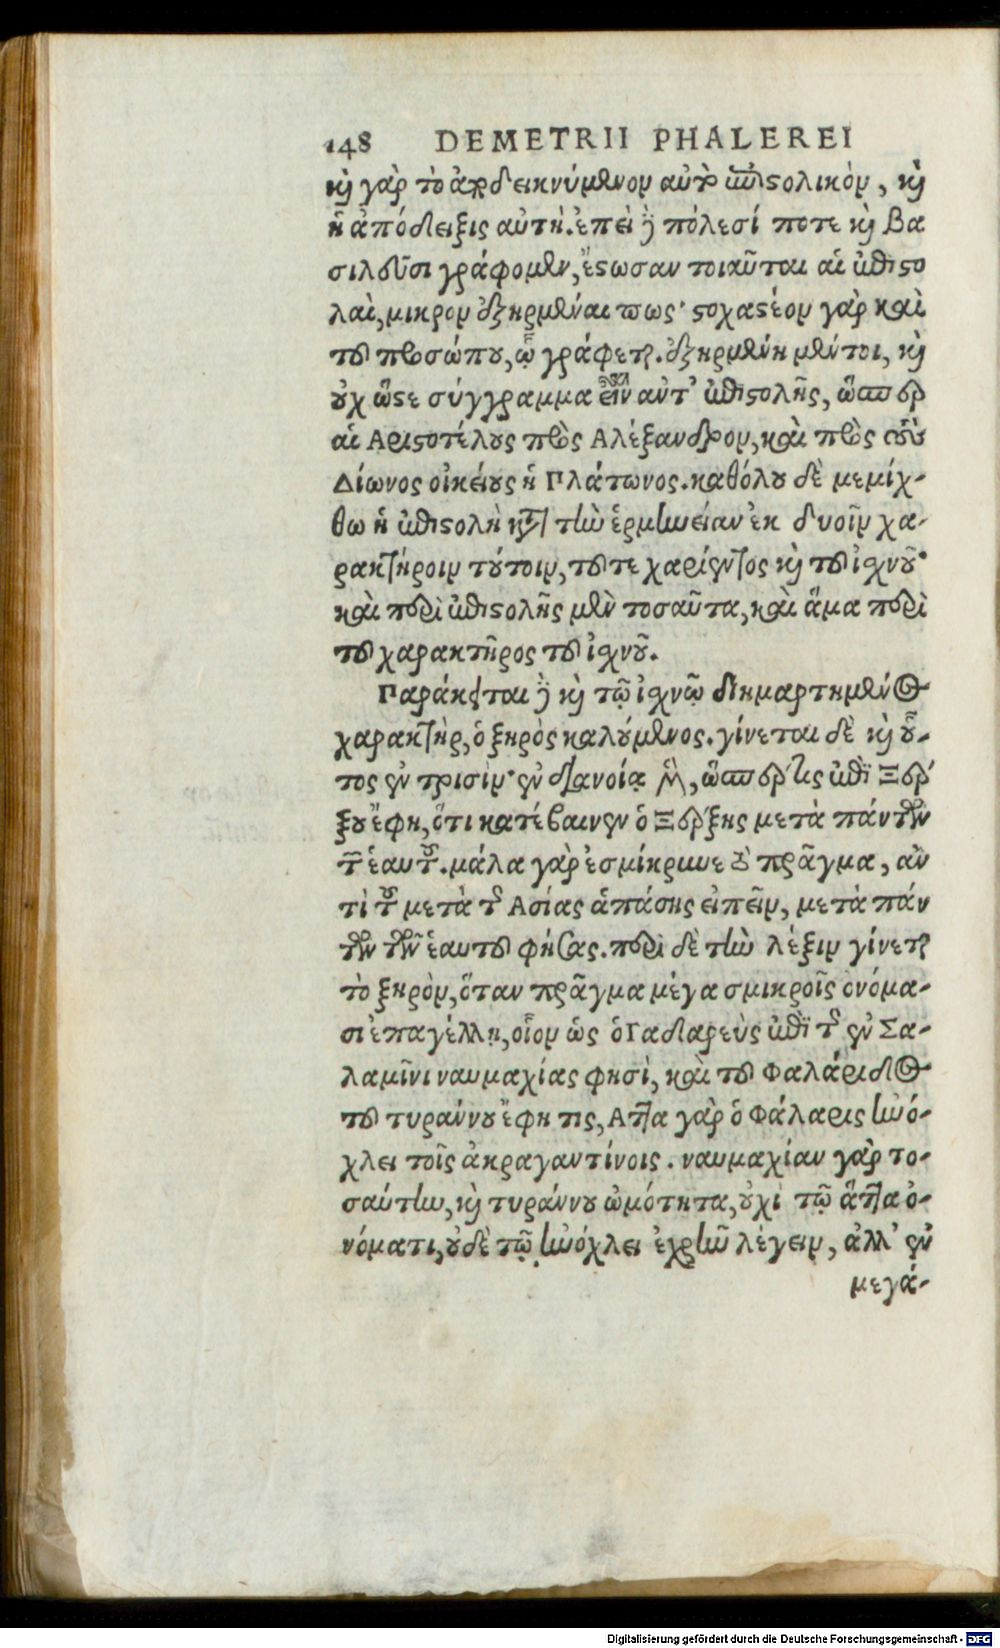 148 DEMETRII PHALEREI
καὶ γὰρ τὸ ἀποδεικνύμενον αὐτὸ ἐπιστολικὸν, καὶ
ἡ ἀπόδειξις αὐτή. ἐπεὶ δὲ πόλεσί ποτε καὶ βα
σιλεῦσι γράφομεν, ἔστωσαν τοιαῦται αἱ ἐπιστο
λαὶ, μικρὸν ἐξηρμέναι πως· στοχαστέον γὰρ καὶ
τοῦ προσώπου, ᾧ γράφεται. ἐξηρμένη μέντοι, καὶ
οὐχ ὥστε σύγγραμμα εἶναι ἀντ' ἐπιστολῆς, ὥσπερ
αἱ Αριστοτέλους πρὸς Αλέξανδρον, καὶ πρὸς τοὺς
Δίωνος οἰκείους ἡ Πλάτωνος. καθόλου δὲ μεμίχ-
θω ἡ ἐπιστολὴ κατὰ τὴν ἑρμηνείαν ἐκ δυοῖν χα-
ρακτήροιν τούτοιν, τοῦ τε χαρίεντος καὶ τοῦ ἰχνοῦ·
καὶ περὶ ἐπιστολῆς μὲν τοσαῦτα, καὶ ἅμα περὶ
τοῦ χαρακτῆρος τοῦ ἰχνοῦ.
Παράκειται δὲ καὶ τῷ ἰχνῷ διημαρτημένος
χαρακτὴρ, ὁ ξηρὸς καλούμενος. γίνεται δὲ καὶ οὗ-
τος ἐν τρισίν· ἐν διανοίᾳ μὲν, ὥσπερ τις ἐπὶ Ξέρ
ξου ἔφη, ὅτι κατέβαινεν ὁ Ξέρξης μετὰ πάντων
τῶν ἑαυτοῦ. μάλα γὰρ ἐσμίκρυνε τὸ πρᾶγμα, ἀν
τὶ τοῦ μετὰ τῆς Ασίας ἁπάσης εἰπεῖν, μετὰ πάν
των τῶν ἑαυτοῦ φήσας. περὶ δὲ τὴν λέξιν γίνεται
τὸ ξηρὸν, ὅταν πρᾶγμα μέγα σμικροῖς ὀνόμα-
σι ἐπαγέλλῃ, οἷον ὡς ὁ Γαδαρεὺς ἐπὶ τῆς ἐν Σα-
λαμῖνι ναυμαχίας φησὶ, καὶ τοῦ Φαλάριδος
τοῦ τυράννου ἔφη τις, Αττα γὰρ ὁ Φάλαρις ἠνό-
χλει τοῖς ἀκραγαντίνοις. ναυμαχίαν γὰρ το-
σαύτην, καὶ τυράννου ὠμότητα, οὐχὶ τῷ ἅττα ὀ-
νόματι, οὐδὲ τῷ ἠνόχλει ἐχρῆν λέγειν, ἀλλ' ἐν
μεγά-
Digitalisierung gefördert durch die Deutsche Forschungsgemeinschaft - DFG